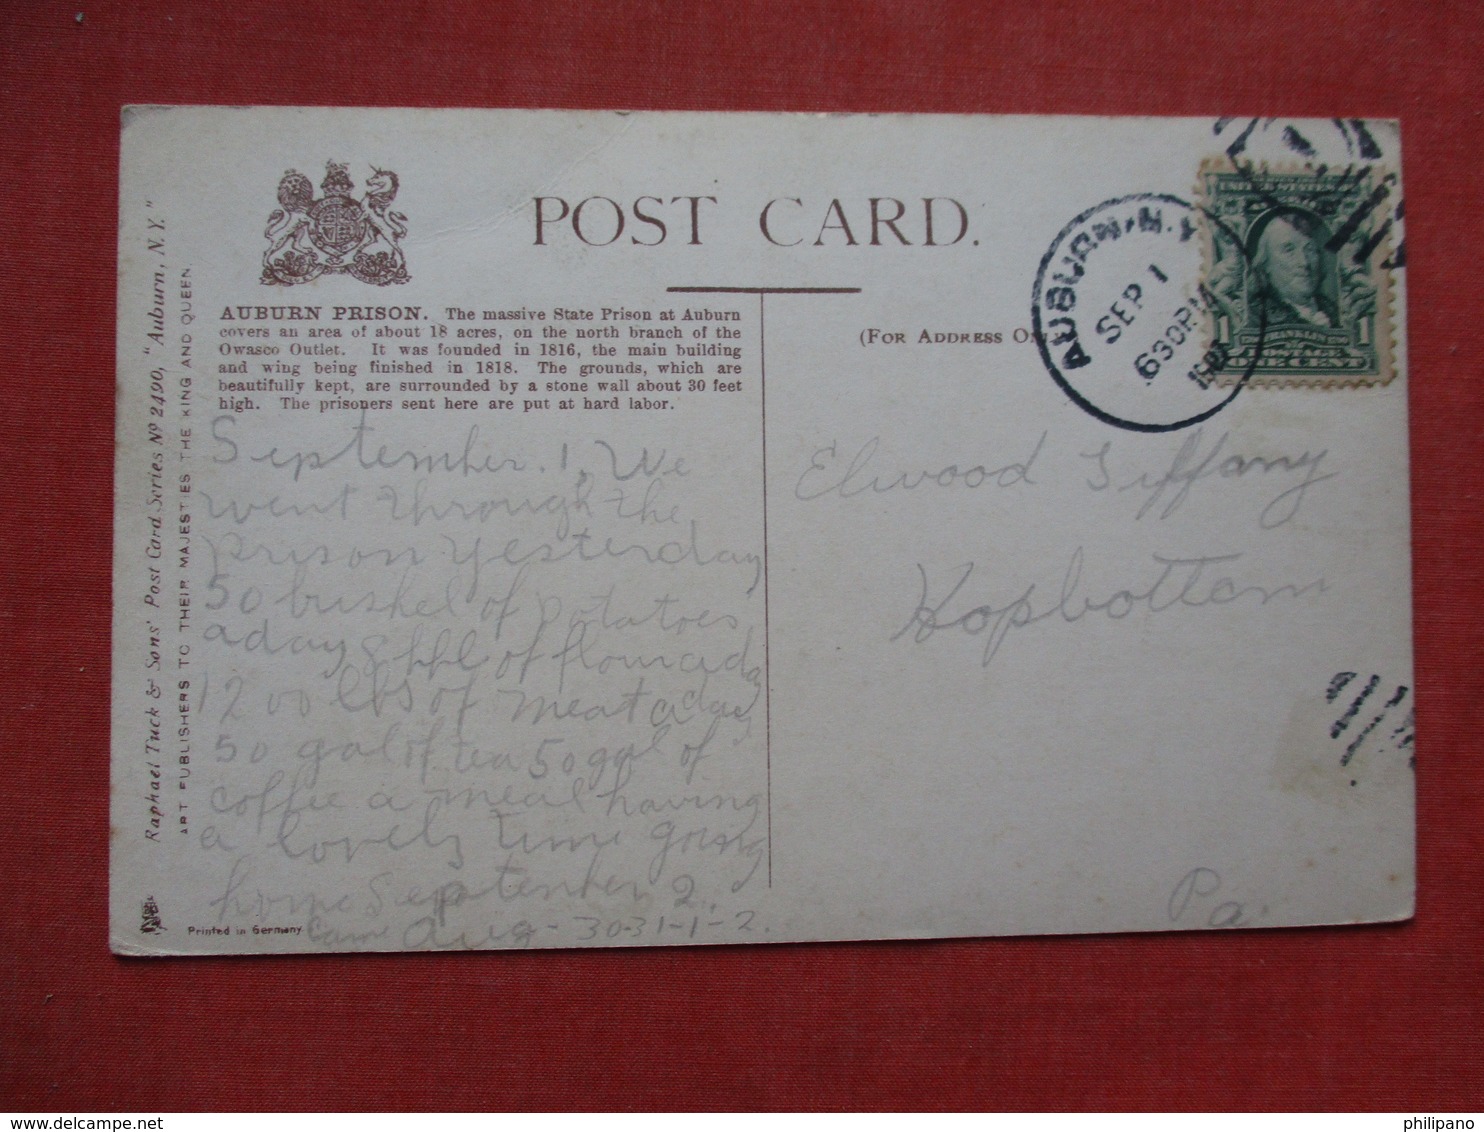 POST CARD.
AUBURN PRISON. The massive State Prison at Auburn
covers an area of about 18 acres, on the north branch of the
Owasco Outlet. It was founded in 1816, the main building
and wing being finished in 1818. The grounds, which are
beautifully kept, are surrounded by a stone wall about 30 feet
high. The prisoners sent here are put at hard labor.
Raphael Tuck & Sons' Post Card Series Nº 2490, "Auburn, N.Y."
ART PUBLISHERS TO THEIR MAJESTIES THE KING AND QUEEN.
September. 1. We
went through the
prison yesterday
50 bushel of potatoes
a day 8 bbl of flour a day
1200 lbs of meat a day
50 gal of tea 50 gal of
coffee a meal having
a lovely time going
home September 2.
Came Aug - 30-31-1-2.
Printed in Germany
(FOR ADDRESS ON
AUBURN, N.Y.
SEP 1
630 PM
1907
UNITED STATES OF
1 1
FRANKLIN
ONE CENT
Elwood Tiffany
Hopbottom
Pa.
philipano
www.delcampe.net